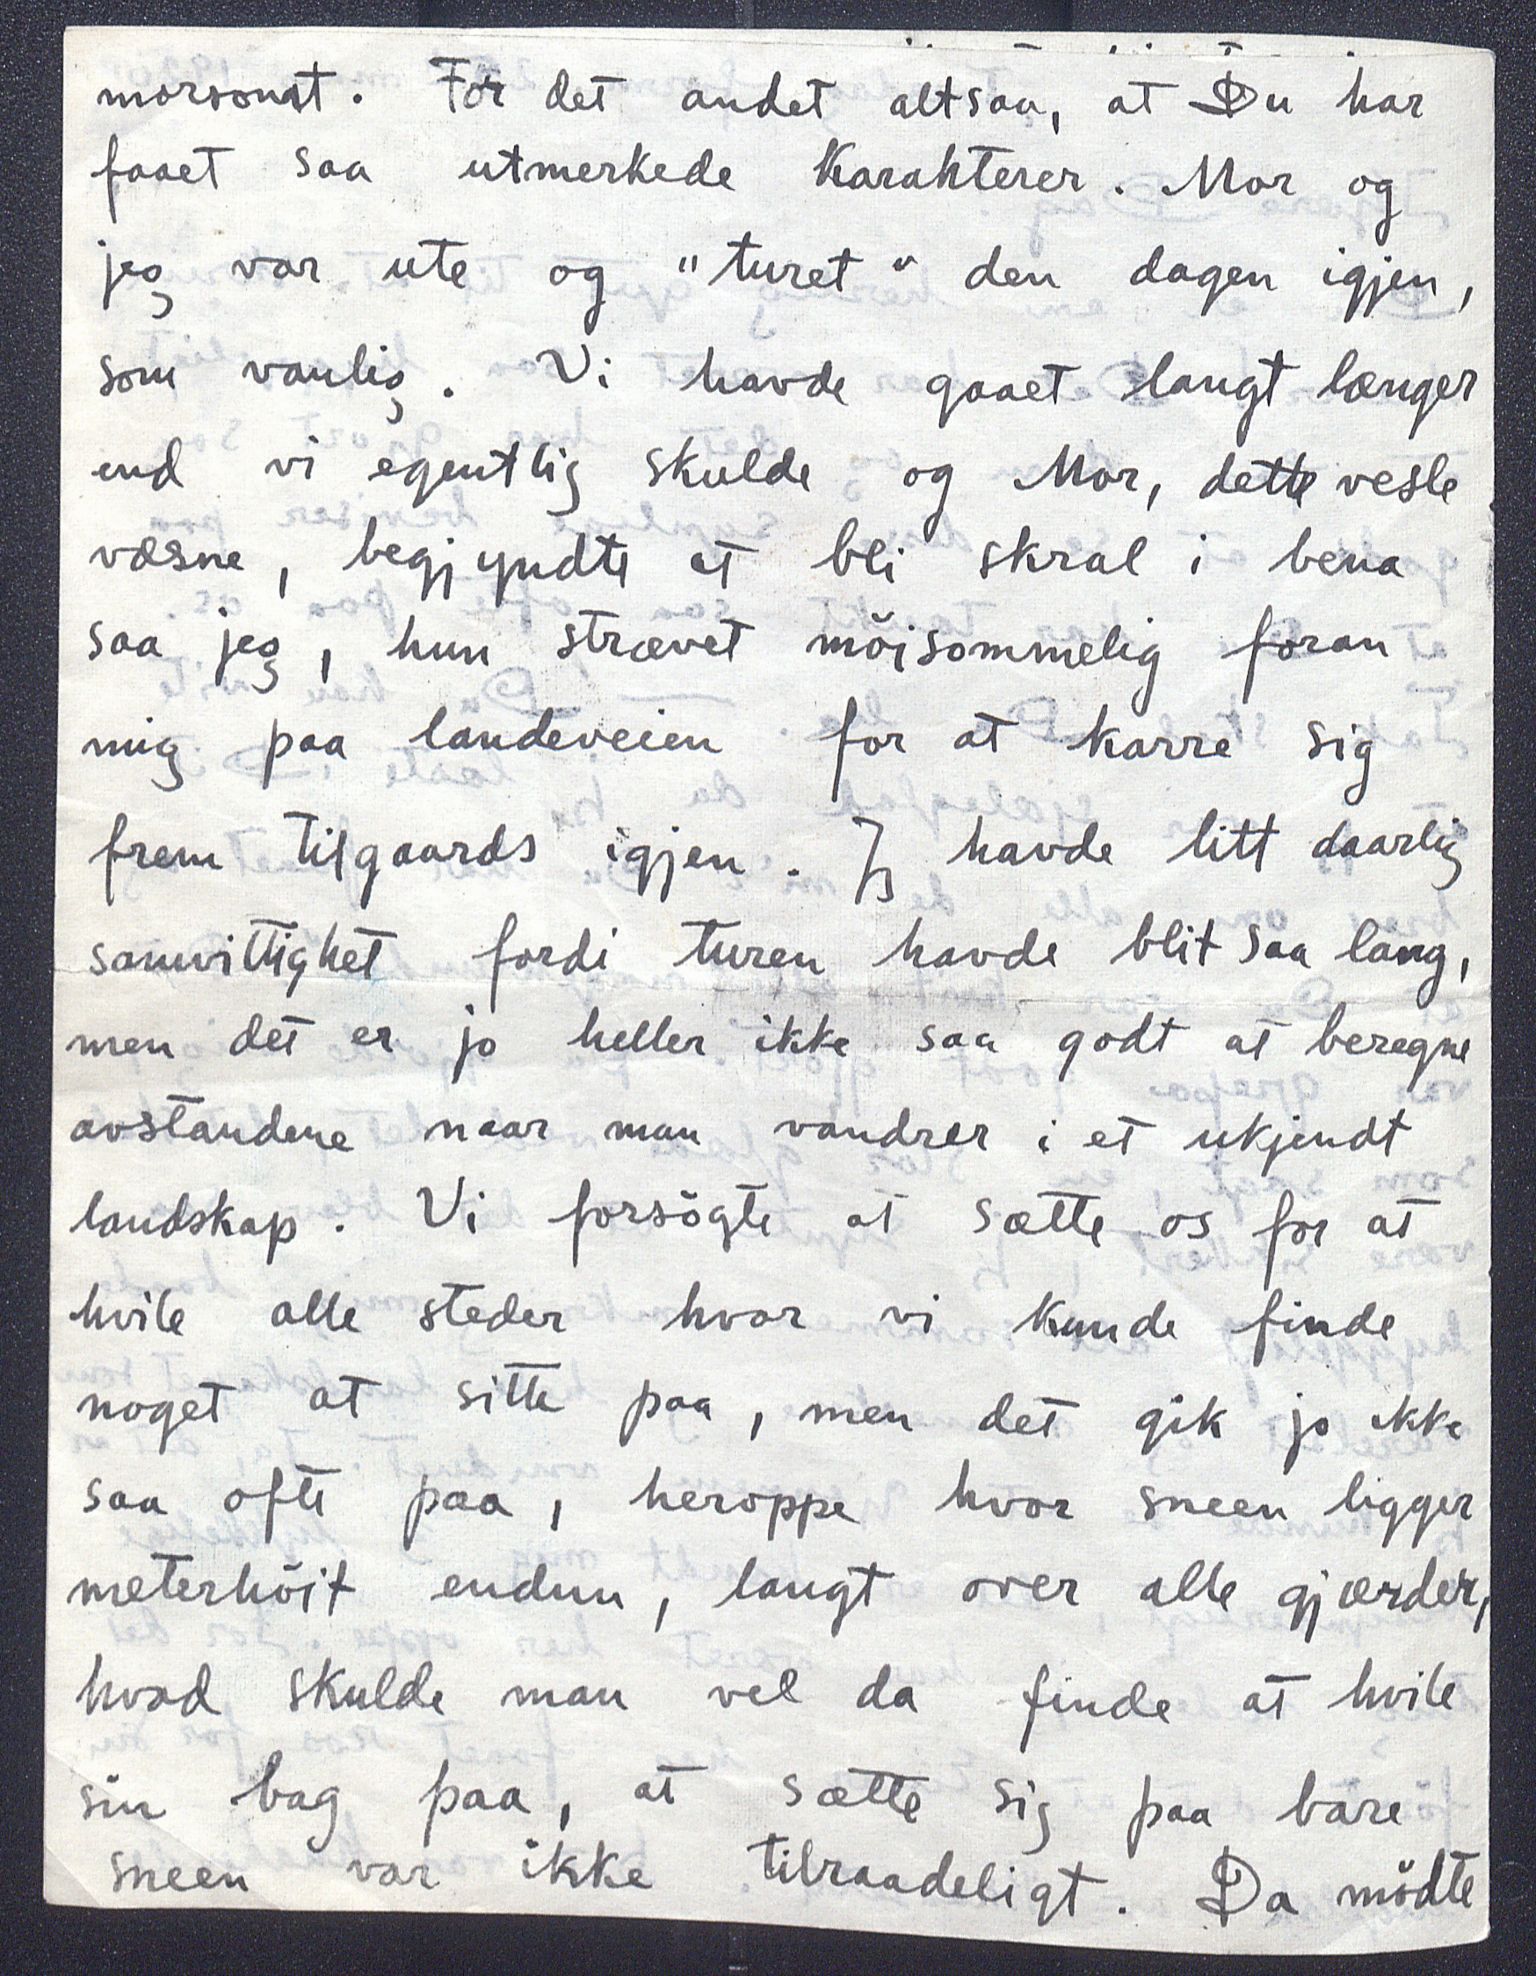 morsomt. For det andet altsaa, at Du har
faaet saa utmerkede Karakterer. Mor og
jeg var ute og "turet" den dagen igjen,
som vanlig. Vi havde gaaet langt længer
end vi egentlig skulde og Mor, dette vesle
væsne, begjyndte at bli skral i bena
saa jeg, hun strævet möisommelig foran
mig paa landeveien for at karre sig
frem tilgaards igjen. Jeg havde litt daarlig
samvittighet fordi turen havde blit saa lang,
men det er jo heller ikke saa godt at beregne
avstandene naar man vandrer i et ukjendt
landskap. Vi forsögte at sætte os for at
hvile alle steder hvor vi kunde finde
noget at sitte paa, men det gik jo ikke
saa ofte paa, heroppe hvor sneen ligger
meterhöit endnu, langt over alle gjærder,
hvad skulde man vel da finde at hvile
sin bag paa, at sætte sig paa bare
sneen var ikke tilraadeligt. Da mödte